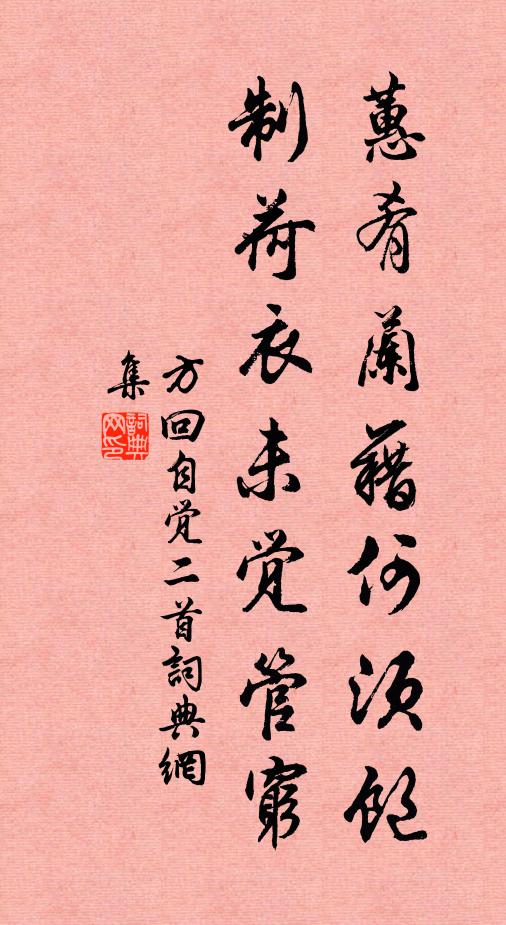 蕙肴蘭藉何須飽
制荷衣未覺管窮
方回自覺二首詞典網
集
詞典网印